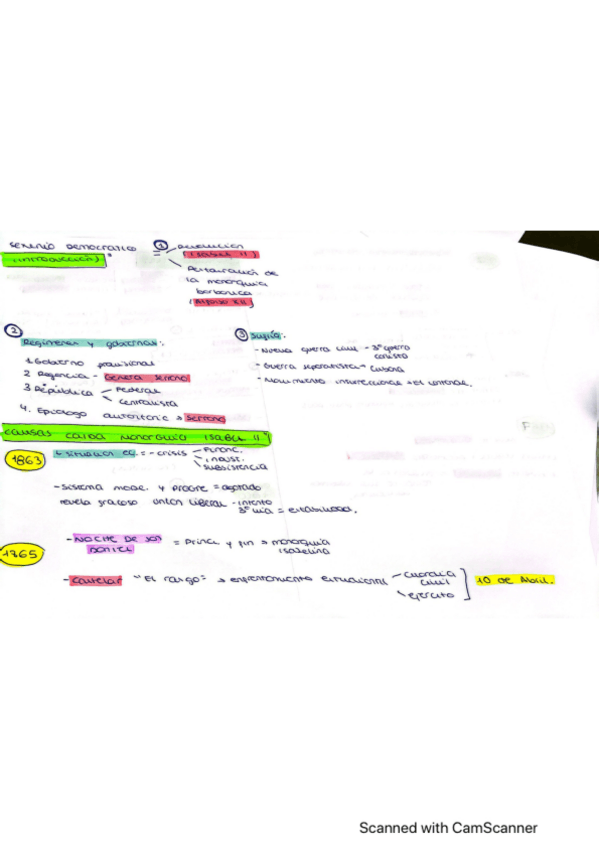 SEXENIO DEMOCRATICO
(introducción)
① = Revolución
(Isabel II)
Restauración de
la monarquía
borbónica
(Alfonso XII)
② Regímenes y gobiernos:
1. Gobierno provisional
2 Regencia - General Serrano
3 República - Federal
Centralista
4. Epílogo autoritario → Serrano
③ Surgía:
- Nueva guerra civil - 3ª guerra
carlista
- Guerra separatista - Cubana
- Movimiento insurreccional → El cantonal.
CAUSAS CAIDA MONARQUIA ISABEL II
1863
situacion ec. = - crisis - Financ.
indust.
subsistencia
- Sistema mode. y progre = agotado
Unión Liberal - intento
3ª vía = estabilidad.
1865
- NOCHE DE SAN
DANIEL = Princ y fin → monarquía
isabelina
- Castelar "El rasgo" → enfrentamiento estudiantil - Guardia
civil
ejército
10 de Abril.
Scanned with CamScanner